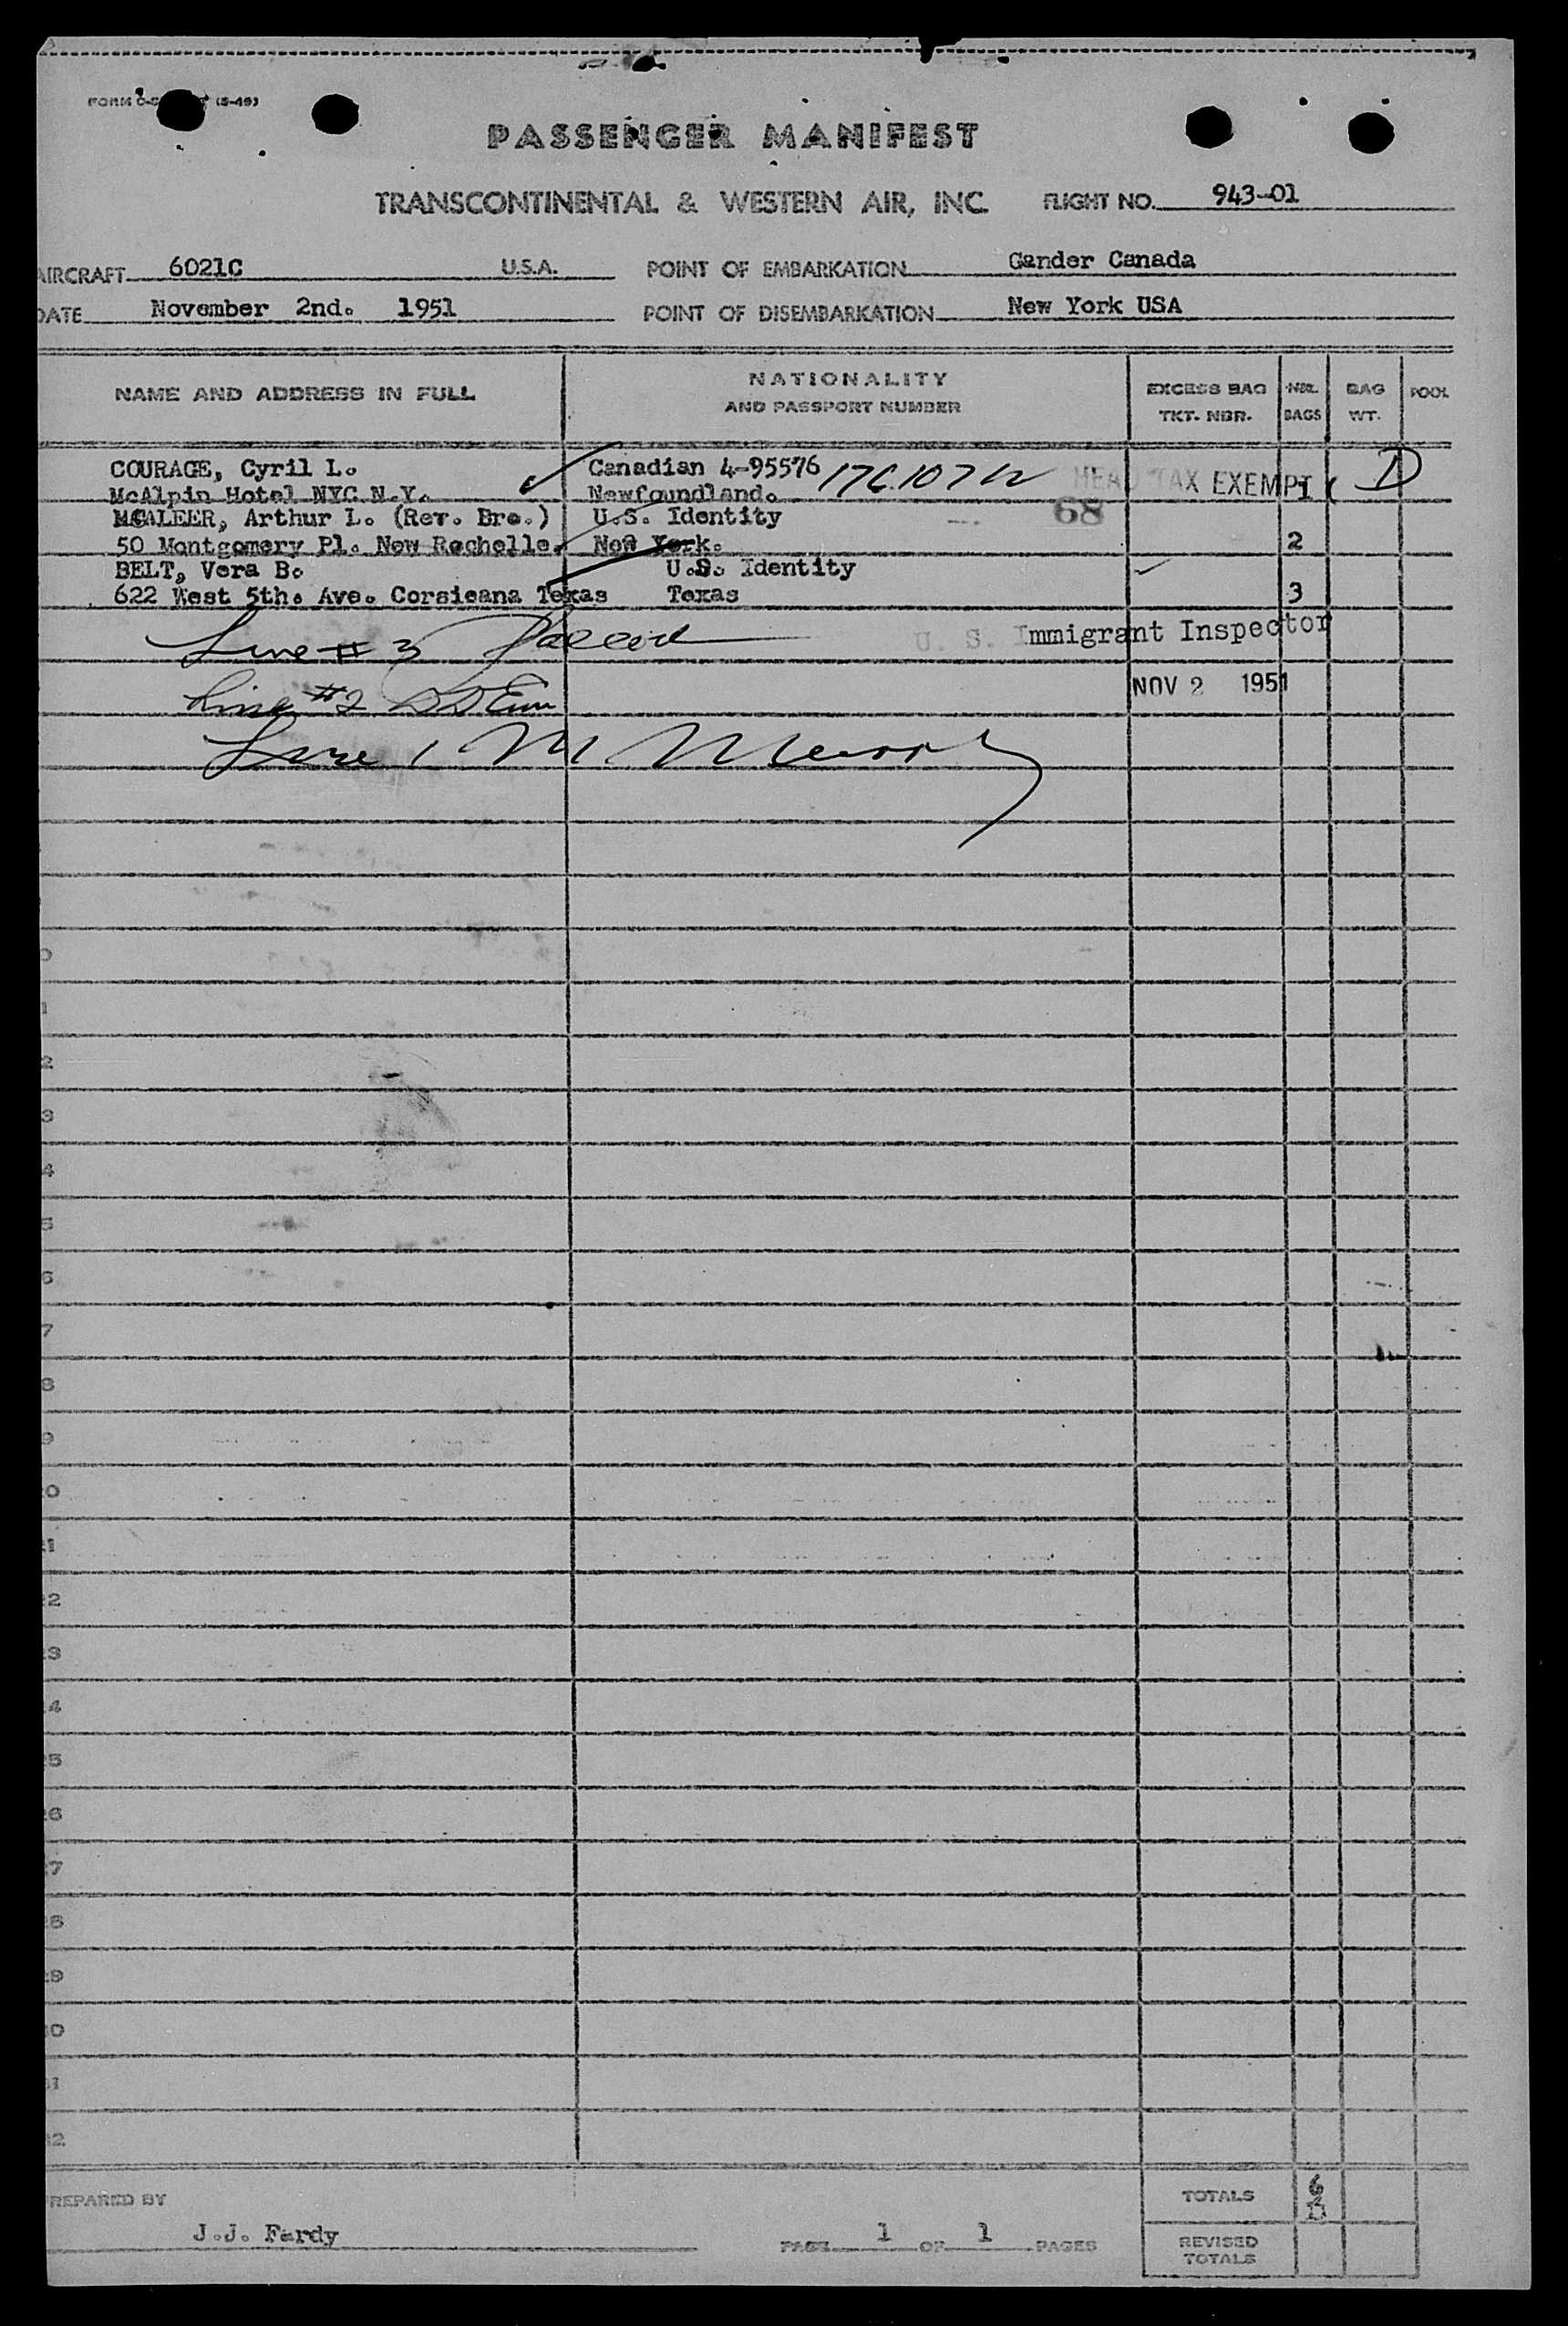 PASSENGER MANIFEST
TRANSCONTINENTAL & WESTERN AIR, INC. FLIGHT NO. 943-01
AIRCRAFT 6021C U.S.A. POINT OF EMBARKATION Gander Canada
DATE November 2nd. 1951 POINT OF DISEMBARKATION New York USA
NAME AND ADDRESS IN FULL NATIONALITY AND PASSPORT NUMBER EXCESS BAG TKT. NBR. NBR. BAGS BAG WT. POOL
COURAGE, Cyril L. Canadian 4-95576
McAlpin Hotel NYC N.Y. Newfoundland. HEAD TAX EXEMPT D
MCALEER, Arthur L. (Rev. Bro.) U.S. Identity 68
50 Montgomery Pl. New Rochelle. New York. 2
BELT, Vera B. U.S. Identity
622 West 5th. Ave. Corsicana Texas Texas 3
Line # 3
U. S. Immigrant Inspector
Line #2
NOV 2 1951
Line 1 M
0
1
2
3
4
5
6
7
8
9
0
21
22
23
24
25
26
27
28
29
30
31
32
PREPARED BY J.J. Fardy
PAGE 1 OF 1 PAGES
TOTALS 6
REVISED TOTALS